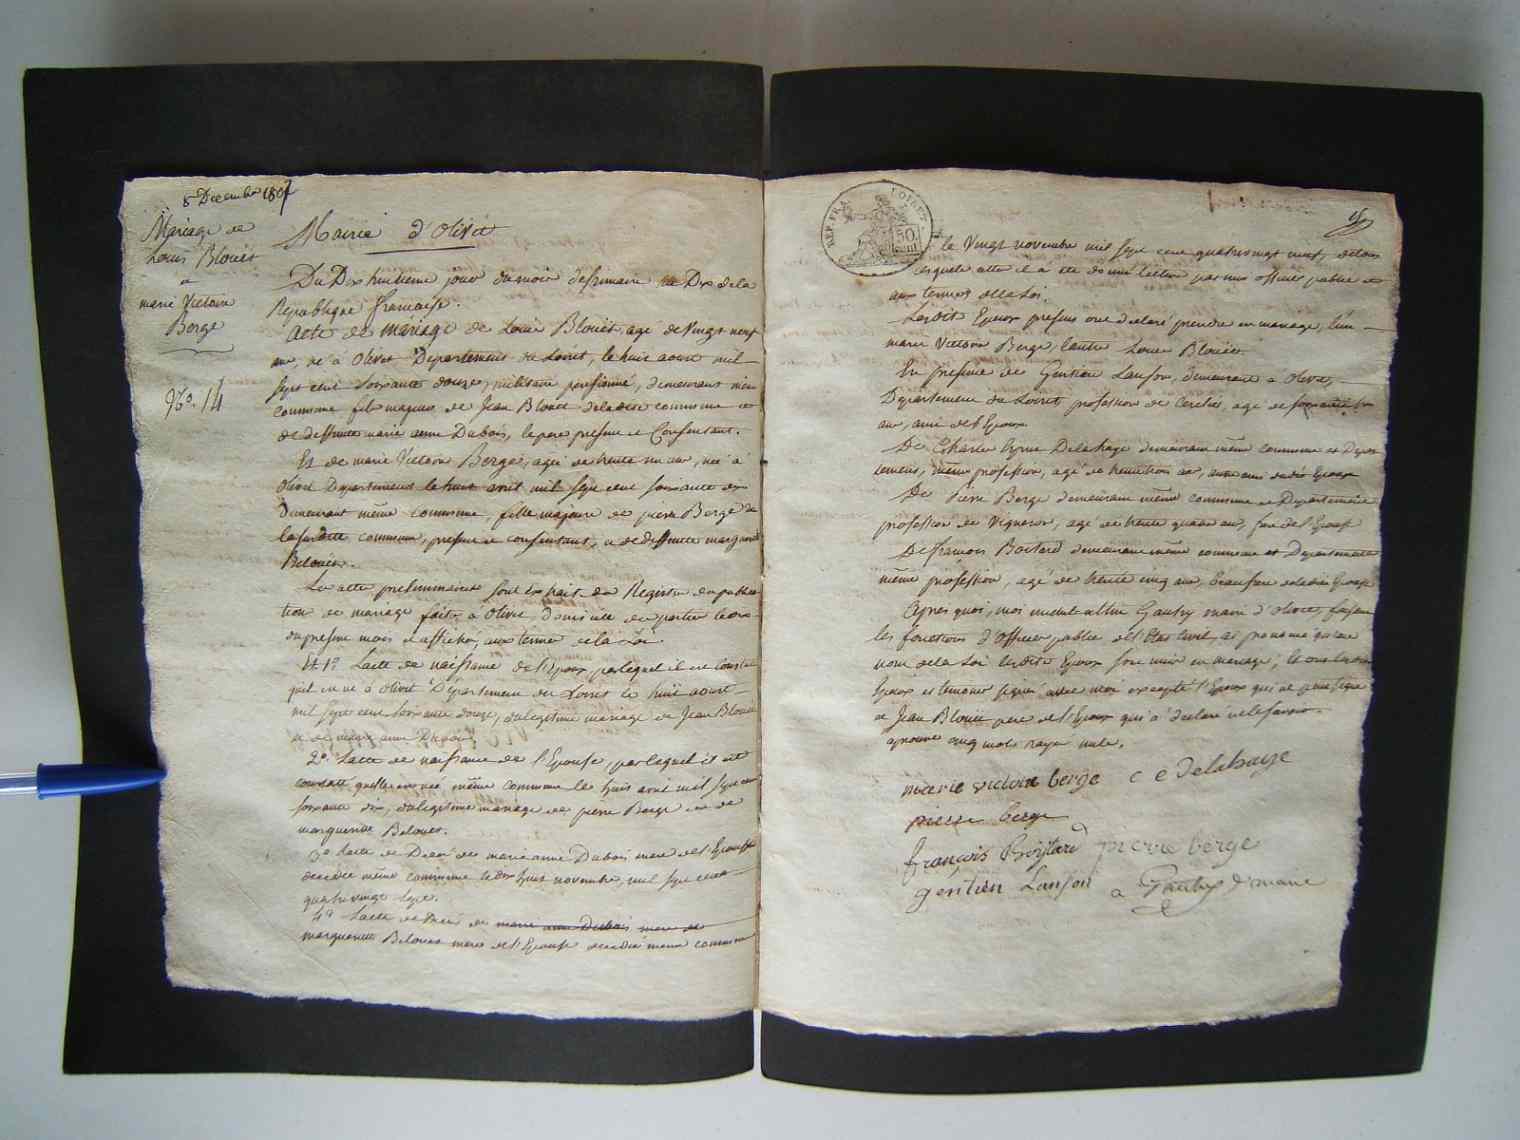 5 Decembre 180
Mariage de
Louis Blouët
a
marie Victoire
Berge
No. 14
Mairie d'Olivet
Du Dix huitieme jour du mois de frimaire an Dix de la
Republique française.
Acte de Mariage de Louis Blouët, agé de Vingt neuf
ans, né à Olivet Departement du Loiret, le huit aoust mil
sept cent soixante douze, militaire pensionné, demeurant même
commune fils majeur de Jean Blouet de la dite commune et
de deffunte marie anne Dubois, le pere present et Consentant.
Et de marie Victoire Berge, agée de trente un ans, née à
Olivet Departement le huit avril mil sept cent soixante dix
demeurant même commune, fille majeure de pierre Berge de
la susditte commune, present et consentant, et de deffunte marguerite
Belouet.
Les actes preliminaires sont extrait du Registre de publica
tion de mariage faite à Olivet,
du present mois et affiches, aux termes de la Loi
Et 1º L'acte de naissance de l'Epoux par lequel il est Constaté
qu'il est né à Olivet Département du Loiret le huit aoust
mil sept cent soixante douze, du legitime mariage de Jean Blouet
et de marie anne Dubois
2º L'acte de naissance de l'Epouse, par lequel il est
constaté qu'elle est née même commune le huit avril mil sept cent
soixante dix, du legitime mariage de pierre Berge et de
marguerite Belouet.
3º L'acte de Décés de marie anne Dubois mere de l'Epoux
decedée même commune le dix huit novembre, mil sept cent
quatre vingt sept.
4º L'acte de decés de marie anne Dubois mere de
marguerite Belouet mere de l'Epouse decedée même commune
REP. FRA.
LOIRET
50
cent
le Vingt novembre mil sept cent quatre vingt neuf, de tous
lesquels actes il a été donné lecture par moi officier public et
aux termes de la Loi.
Lesdits Epoux presens ont declaré prendre en mariage, l'un
marie Victoire Berge, l'autre Louis Blouët.
En presence de Gentien Lanson, demeurant à Olivet,
Departement du Loiret profession de
ans, ami de l'Epoux
De Charles Delahaye demeurant même commune et Depar
tement, même profession, agé de trente trois ans, ami dudit Epoux
De Pierre Berge demeurant même commune et Departement
profession de Vigneron, agé de trente quatre ans, frere de l'Epouse
De françois Boistard demeurant même commune et Departement
même profession, agé de trente cinq ans, beau frere de ladite Epouse
Après quoi, moi Gaudry maire d'olivet, faisant
les fonctions d'officier public de l'Etat Civil, ai prononcé qu'au
nom de la Loi lesdits Epoux sont unis en mariage, et ont lesdits
Epoux et temoins signé avec moi excepté l'Epoux qui ne peut signer
et Jean Blouët pere de l'Epoux qui a déclaré ne le savoir.
aprouvé cinq mots rayé nuls.
marie victoire berge c e Delahaye
pierre berge
françois Boistard pierre berge
gentien Lanson